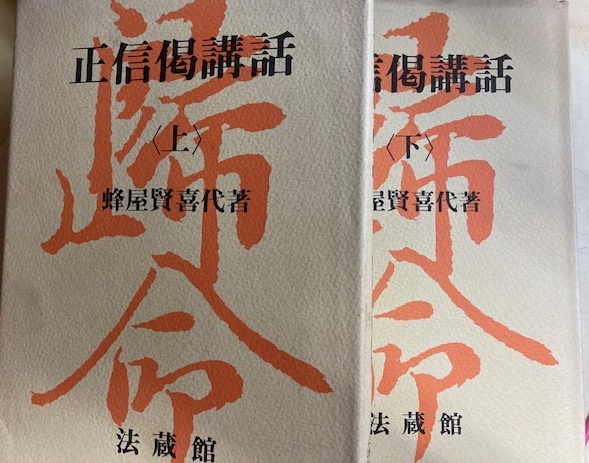 正信偈講話
〈上〉
蜂屋賢喜代著
法蔵館
歸命
信偈講話
〈下〉
屋賢喜代著
法蔵館